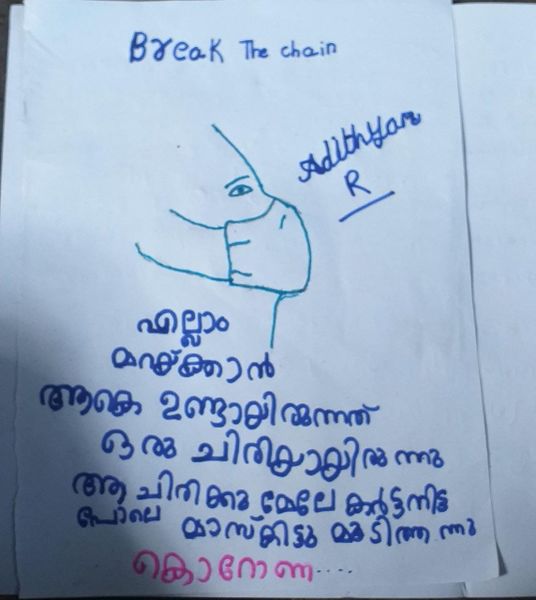 Break The chain
Adithyan
R
എല്ലാം
മറയ്ക്കാൻ
ആകെ ഉണ്ടായിരുന്നത്
ഒരു ചിരിയായിരുന്നു
ആ ചിരിക്കു മേലേ കർട്ടനിട്ട
പോലെ മാസ്കിട്ടു മൂടിത്തന്നു
കൊറോണ....